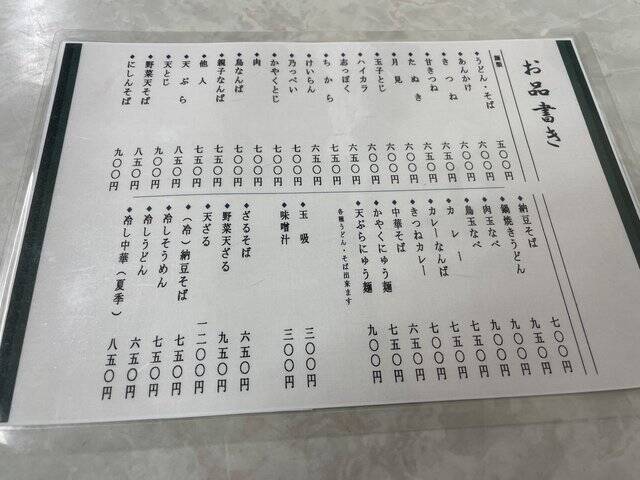 お品書き
麺類
◆うどん・そば 五〇〇円
◆あんかけ 六〇〇円
◆きつね 六〇〇円
◆甘きつね 六五〇円
◆たぬき 六〇〇円
◆月見 六〇〇円
◆玉子とじ 六五〇円
◆ハイカラ 六〇〇円
◆志っぽく 六五〇円
◆ちから 六五〇円
◆けいらん 六五〇円
◆乃っぺい 七五〇円
◆かやくとじ 七〇〇円
◆肉 七〇〇円
◆鳥なんば 七〇〇円
◆親子なんば 七五〇円
◆他人 七五〇円
◆天ぷら 八五〇円
◆天とじ 九〇〇円
◆野菜天そば 八五〇円
◆にしんそば 九〇〇円
◆納豆そば 七〇〇円
◆鍋焼きうどん 九〇〇円
◆肉玉なべ 九五〇円
◆鳥玉なべ 九〇〇円
◆カレー 七五〇円
◆カレーなんば 七五〇円
◆きつねカレー 七〇〇円
◆中華そば 六五〇円
◆かやくにゅう麺 七五〇円
◆天ぷらにゅう麺 九〇〇円
各種うどん・そば出来ます
◆玉吸 三〇〇円
◆味噌汁 三〇〇円
◆ざるそば 六五〇円
◆野菜天ざる 九五〇円
◆天ざる 一一〇〇円
◆（冷）納豆そば 七五〇円
◆冷しそうめん 七五〇円
◆冷しうどん 七五〇円
◆冷し中華（夏季） 八五〇円